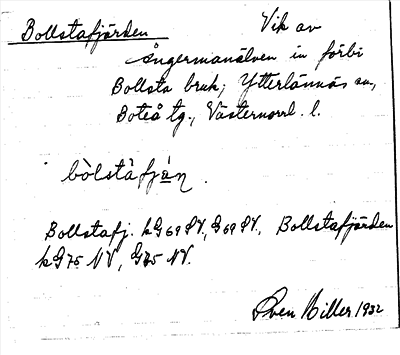 Bollstafjärden Vik av
Ångermanälven in förbi
Bollsta bruk; Ytterlännäs sn,
Boteå tg., Västernorrl. l.
bòlstàfjä̀n.
Bollstafj. kG69SV, G69SV, Bollstafjärden
kG75 NV, G75 NV.
Sven Miller 1932